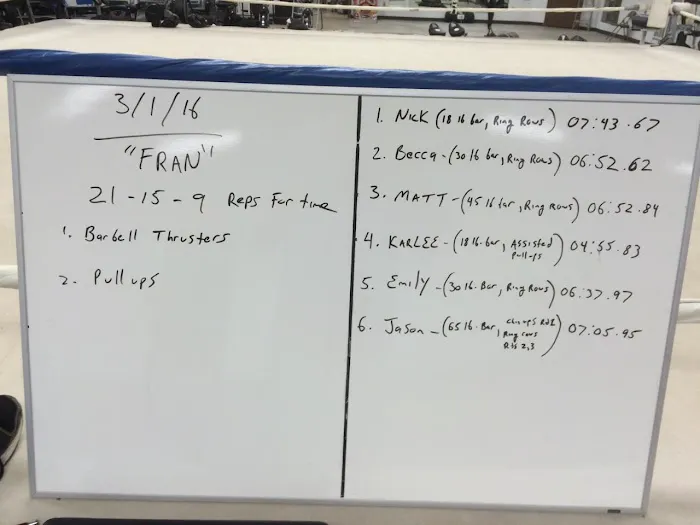 3/1/16
"FRAN"
21-15-9 Reps For time
1. Barbell Thrusters
2. Pull ups
1. Nick (18 lb bar, Ring Rows) 07:43.67
2. Becca - (30 lb bar, Ring Rows) 06:52.62
3. MATT - (45 lb bar, Ring Rows) 06:52.84
4. KARLEE - (18 lb. bar, Assisted Pull-ups) 04:55.83
5. Emily - (30 lb. Bar, Ring Rows) 06:37.97
6. Jason - (65 lb. Bar, chinups Rd 1
Ring rows
Rds 2,3) 07:05.95